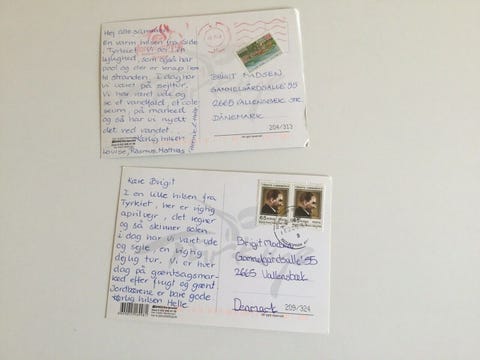 Hej alle sammen
En varm hilsen fra side
i Tyrkiet. Vi bor i en
lejlighed, som også har
pool og der er
til stranden. I dag har
vi været på sejltur.
Vi har været ude og
se et vandfald, et colo
seum, på marked
og så har vi nydt
det ved vandet...
Kærlig hilsen
Louise, Rasmus, Mathias
BIRGIT MADSEN
GAMMELGÅRDSALLE' 55
2665 VALLENSBÆK STR.
DANEMARK
209/313
Kære Birgit
I en lille hilsen fra
Tyrkiet, her er rigtig
aprilvejr, det regner
og så skinner solen.
i dag har vi været ude
og sejle, en rigtig
dejlig tur. Vi er hver
dag på grøntsagsmar-
ked efter frugt og grønt
Jordbærene er bare gode
Kærlig hilsen Helle
65
65
Birgit Madsen
Gammelgårdsalle' 55
2665 Vallensbæk
Denmark
209/324